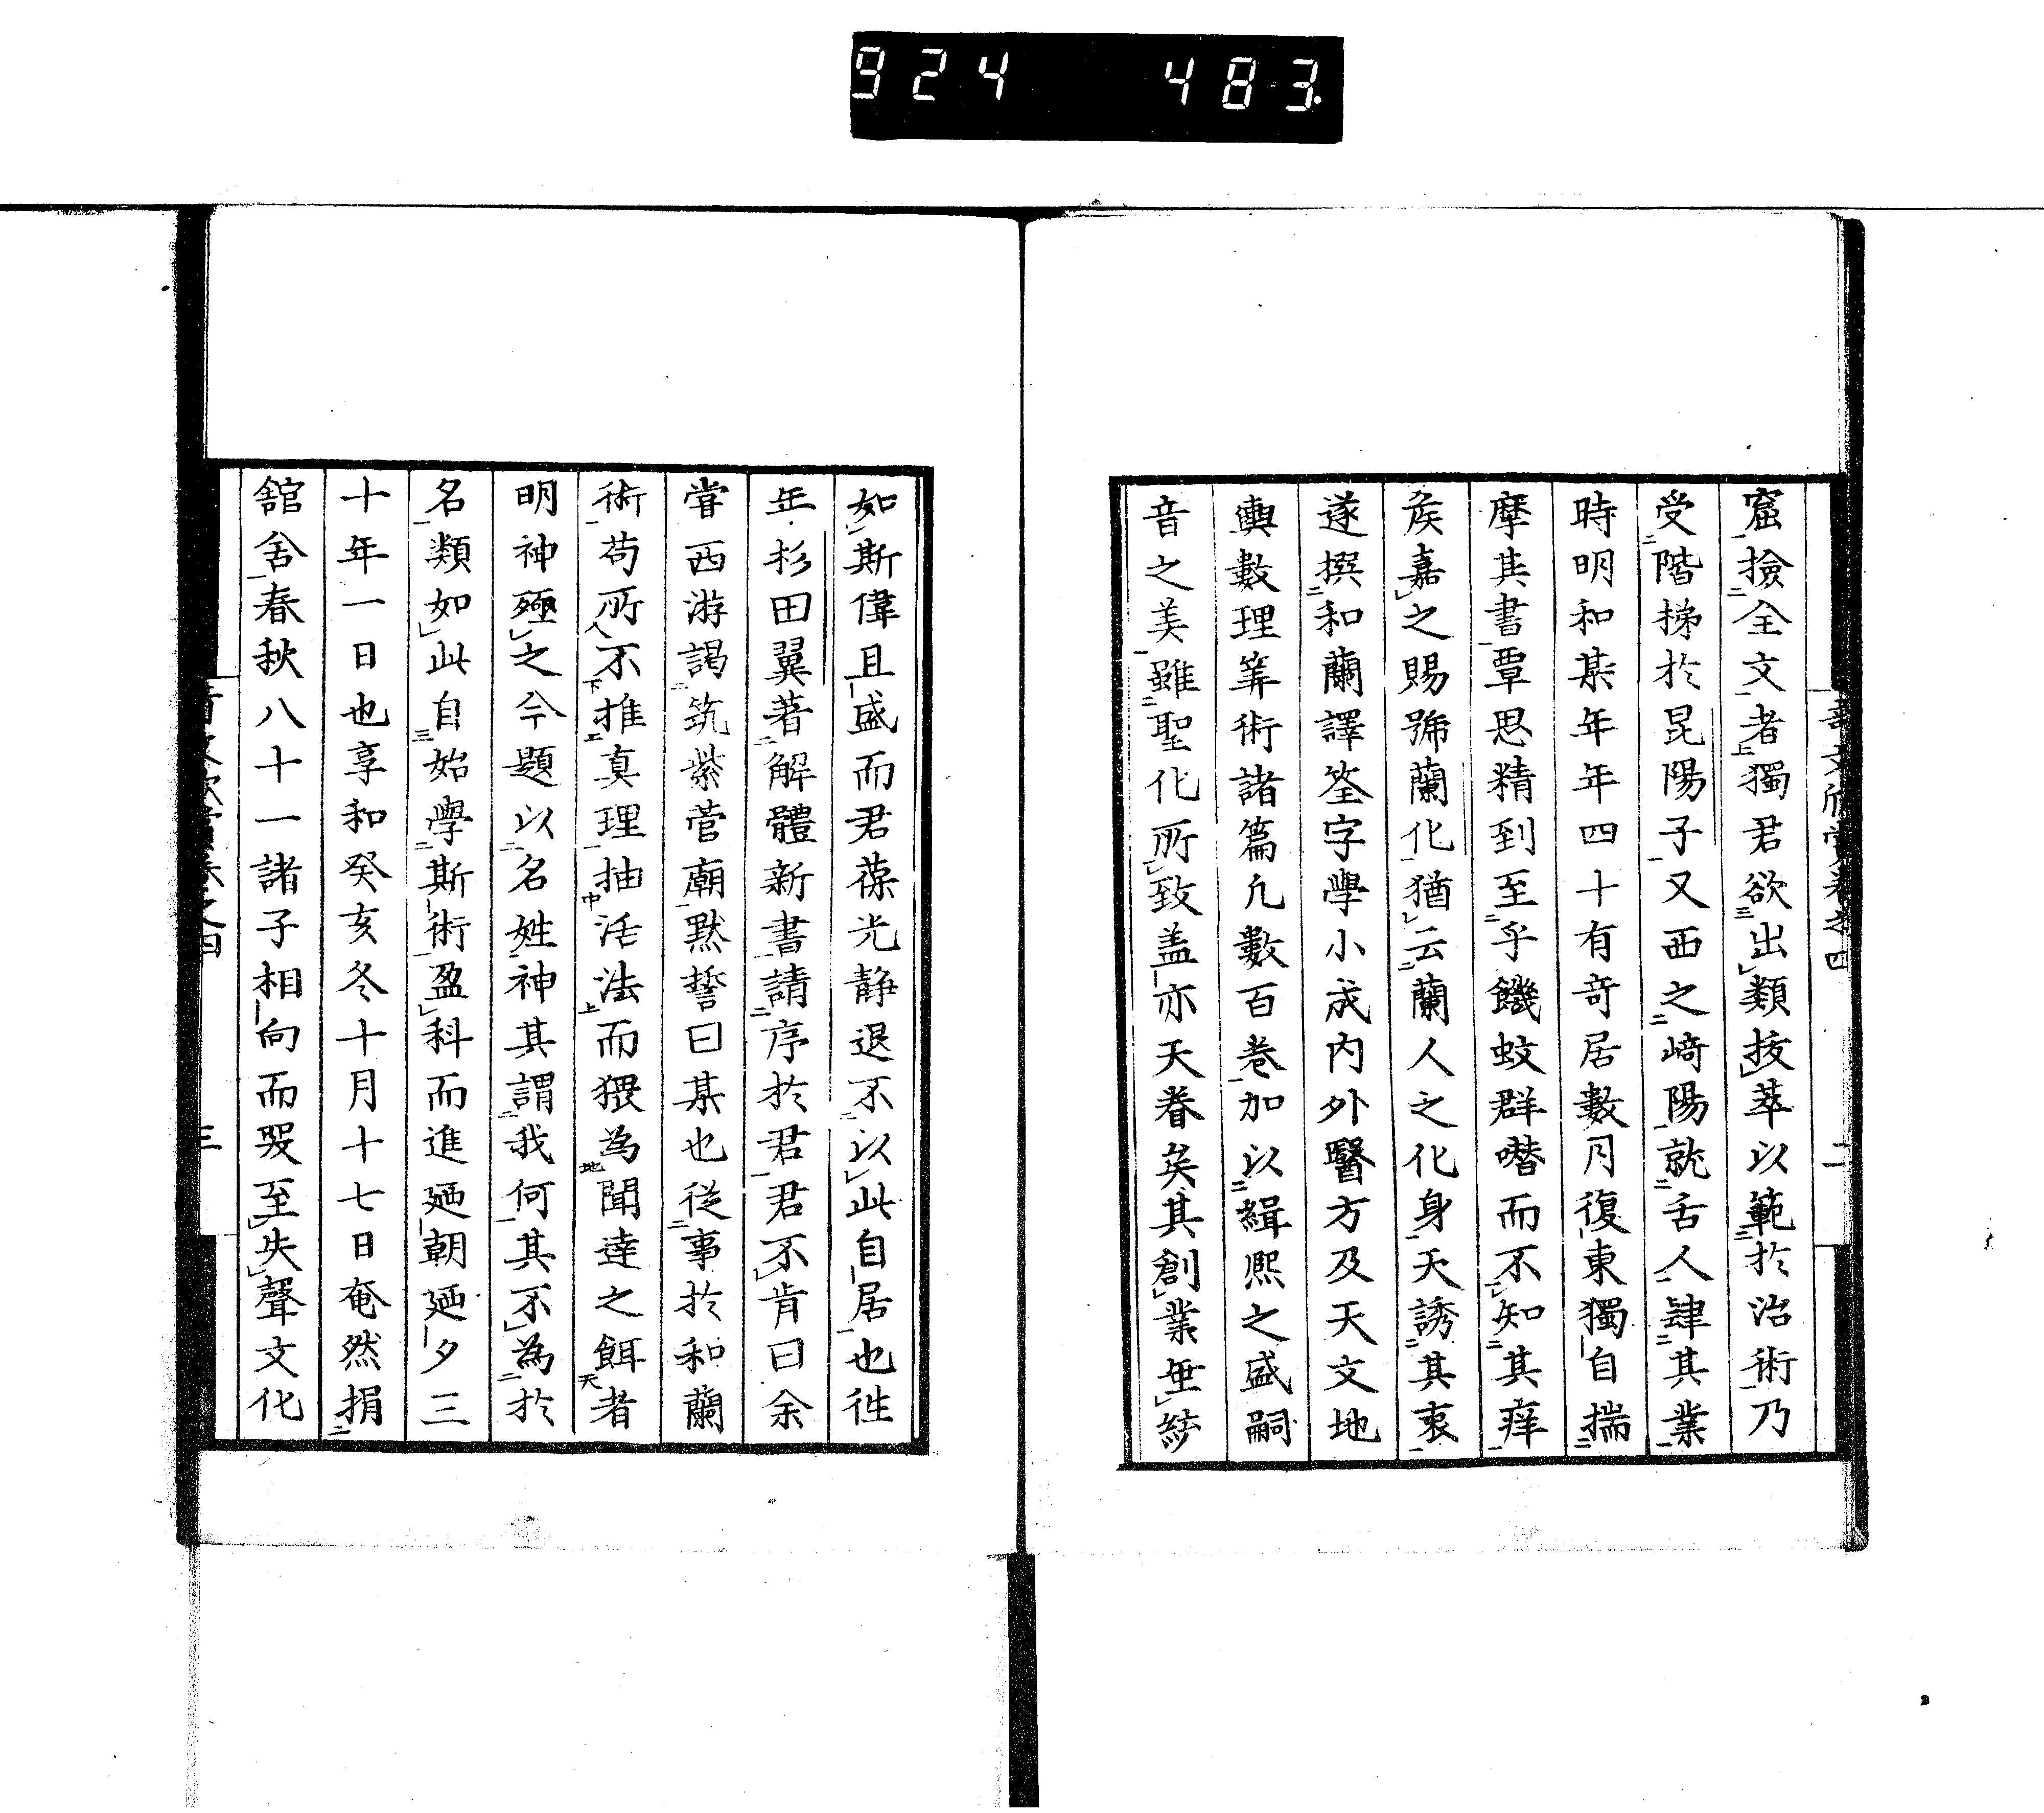 924 483.
窟撿全文者獨君欲出類拔萃以範於治術乃
受階梯於昆陽子又西之﨑陽就舌人肆其業
時明和某年年四十有奇居數月復東獨自揣
摩其書覃思精到至乎饑蚊群噆而不知其痒
矦嘉之賜號蘭化猶云蘭人之化身天誘其衷
遂撰和蘭譯筌字學小成内外醫方及天文地
輿數理筭術諸篇凢數百卷加以緝熈之盛嗣
音之美雖聖化所致盖亦天眷矣其創業垂統
二
如斯偉且盛而君葆光静退不以此自居也徃
年杉田翼著解體新書請序於君君不肯曰余
甞西游謁筑紫菅廟默誓曰某也従事於和蘭
術苟所不推真理抽活法而猥為聞達之餌者
明神殛之今題以名姓神其謂我何其不為於
名類如此自始學斯術盈科而進廼朝廼夕三
十年一日也享和癸亥冬十月十七日奄然捐
舘舎春秋八十一諸子相向而哭至失聲文化
三